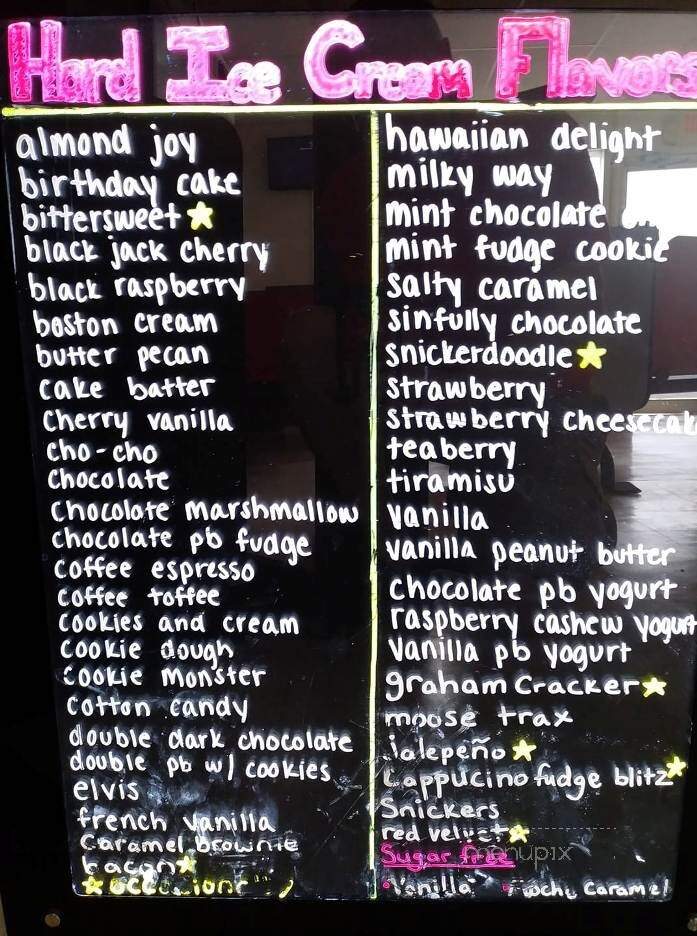 Hard Ice Cream Flavors
almond joy
birthday cake
bittersweet
black jack cherry
black raspberry
boston cream
butter pecan
cake batter
cherry vanilla
cho-cho
chocolate
chocolate marshmallow
chocolate pb fudge
coffee espresso
coffee toffee
cookies and cream
cookie dough
cookie monster
cotton candy
double dark chocolate
double pb w/ cookies
elvis
french vanilla
Caramel brownie
bacon
hawaiian delight
milky way
mint chocolate
mint fudge cookie
salty caramel
sinfully chocolate
snickerdoodle
strawberry
strawberry cheesecak
teaberry
tiramisu
vanilla
vanilla peanut butter
chocolate pb yogurt
raspberry cashew yogurt
vanilla pb yogurt
graham Cracker
moose trax
Jalepeño
Cappucino fudge blitz
Snickers
red velvet
Sugar free
Vanilla Caramel
menupix